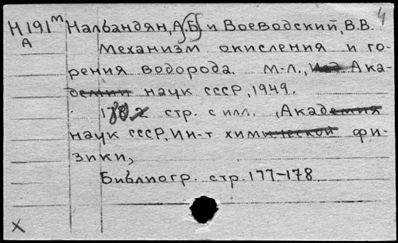 Н191м Налбандян, А.Б. и Воеводский, В.В. 4
А Механизм окисления и го-
рения водорода. М-Л., Изд. Ака-
демии наук СССР, 1949.
стр. с илл. (Академия
наук СССР, Ин-т химической фи-
зики,
Библиогр. стр. 177-178
X